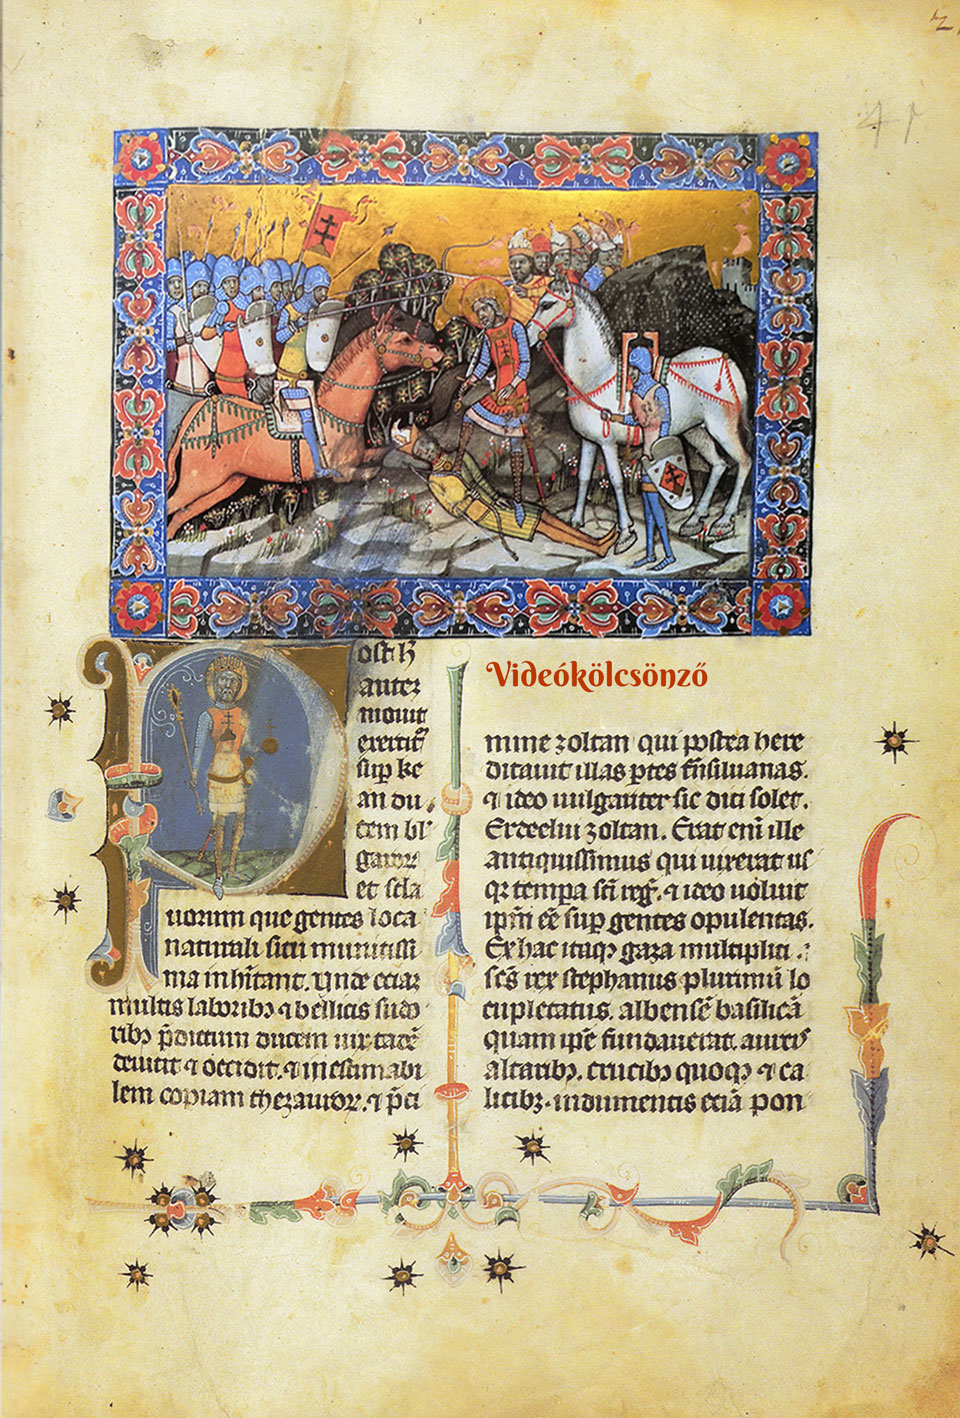 ost h̄
autem
mouit
exercitū
sup ke
an du
cem bl
garor
et scla
uorum que gentes loca
naturali situ munitissi
ma inhītant. Unde eciam
multis laboribꝫ ⁊ bellicis sudo
ribꝫ p̄dictum ducem uix tadē
deuicit ⁊ occidit. ⁊ inestimabi
lem copiam thezauror. ⁊ p̄ci
Videókölcsönző
mine zoltan qui postea here
ditauit illas ptes tn̄siluanas.
⁊ ideo uulgariter sic dici solet.
Erdeelui zoltan. Erat eni ille
antiquissimus qui uixerat us
qꝫ tempa sc̄i reg. ⁊ ideo uoluit
ip̄m eē sup gentes opulentas.
Ex hac itaqꝫ gaza multiplici
sc̄s rex stephanus plurimū lo
cupletatus. albensē basilicā
quam ip̄e fundauerat. aureis
altaribꝫ. crucibꝫ quoqꝫ ⁊ ca
licibꝫ. indumentis eciā pon